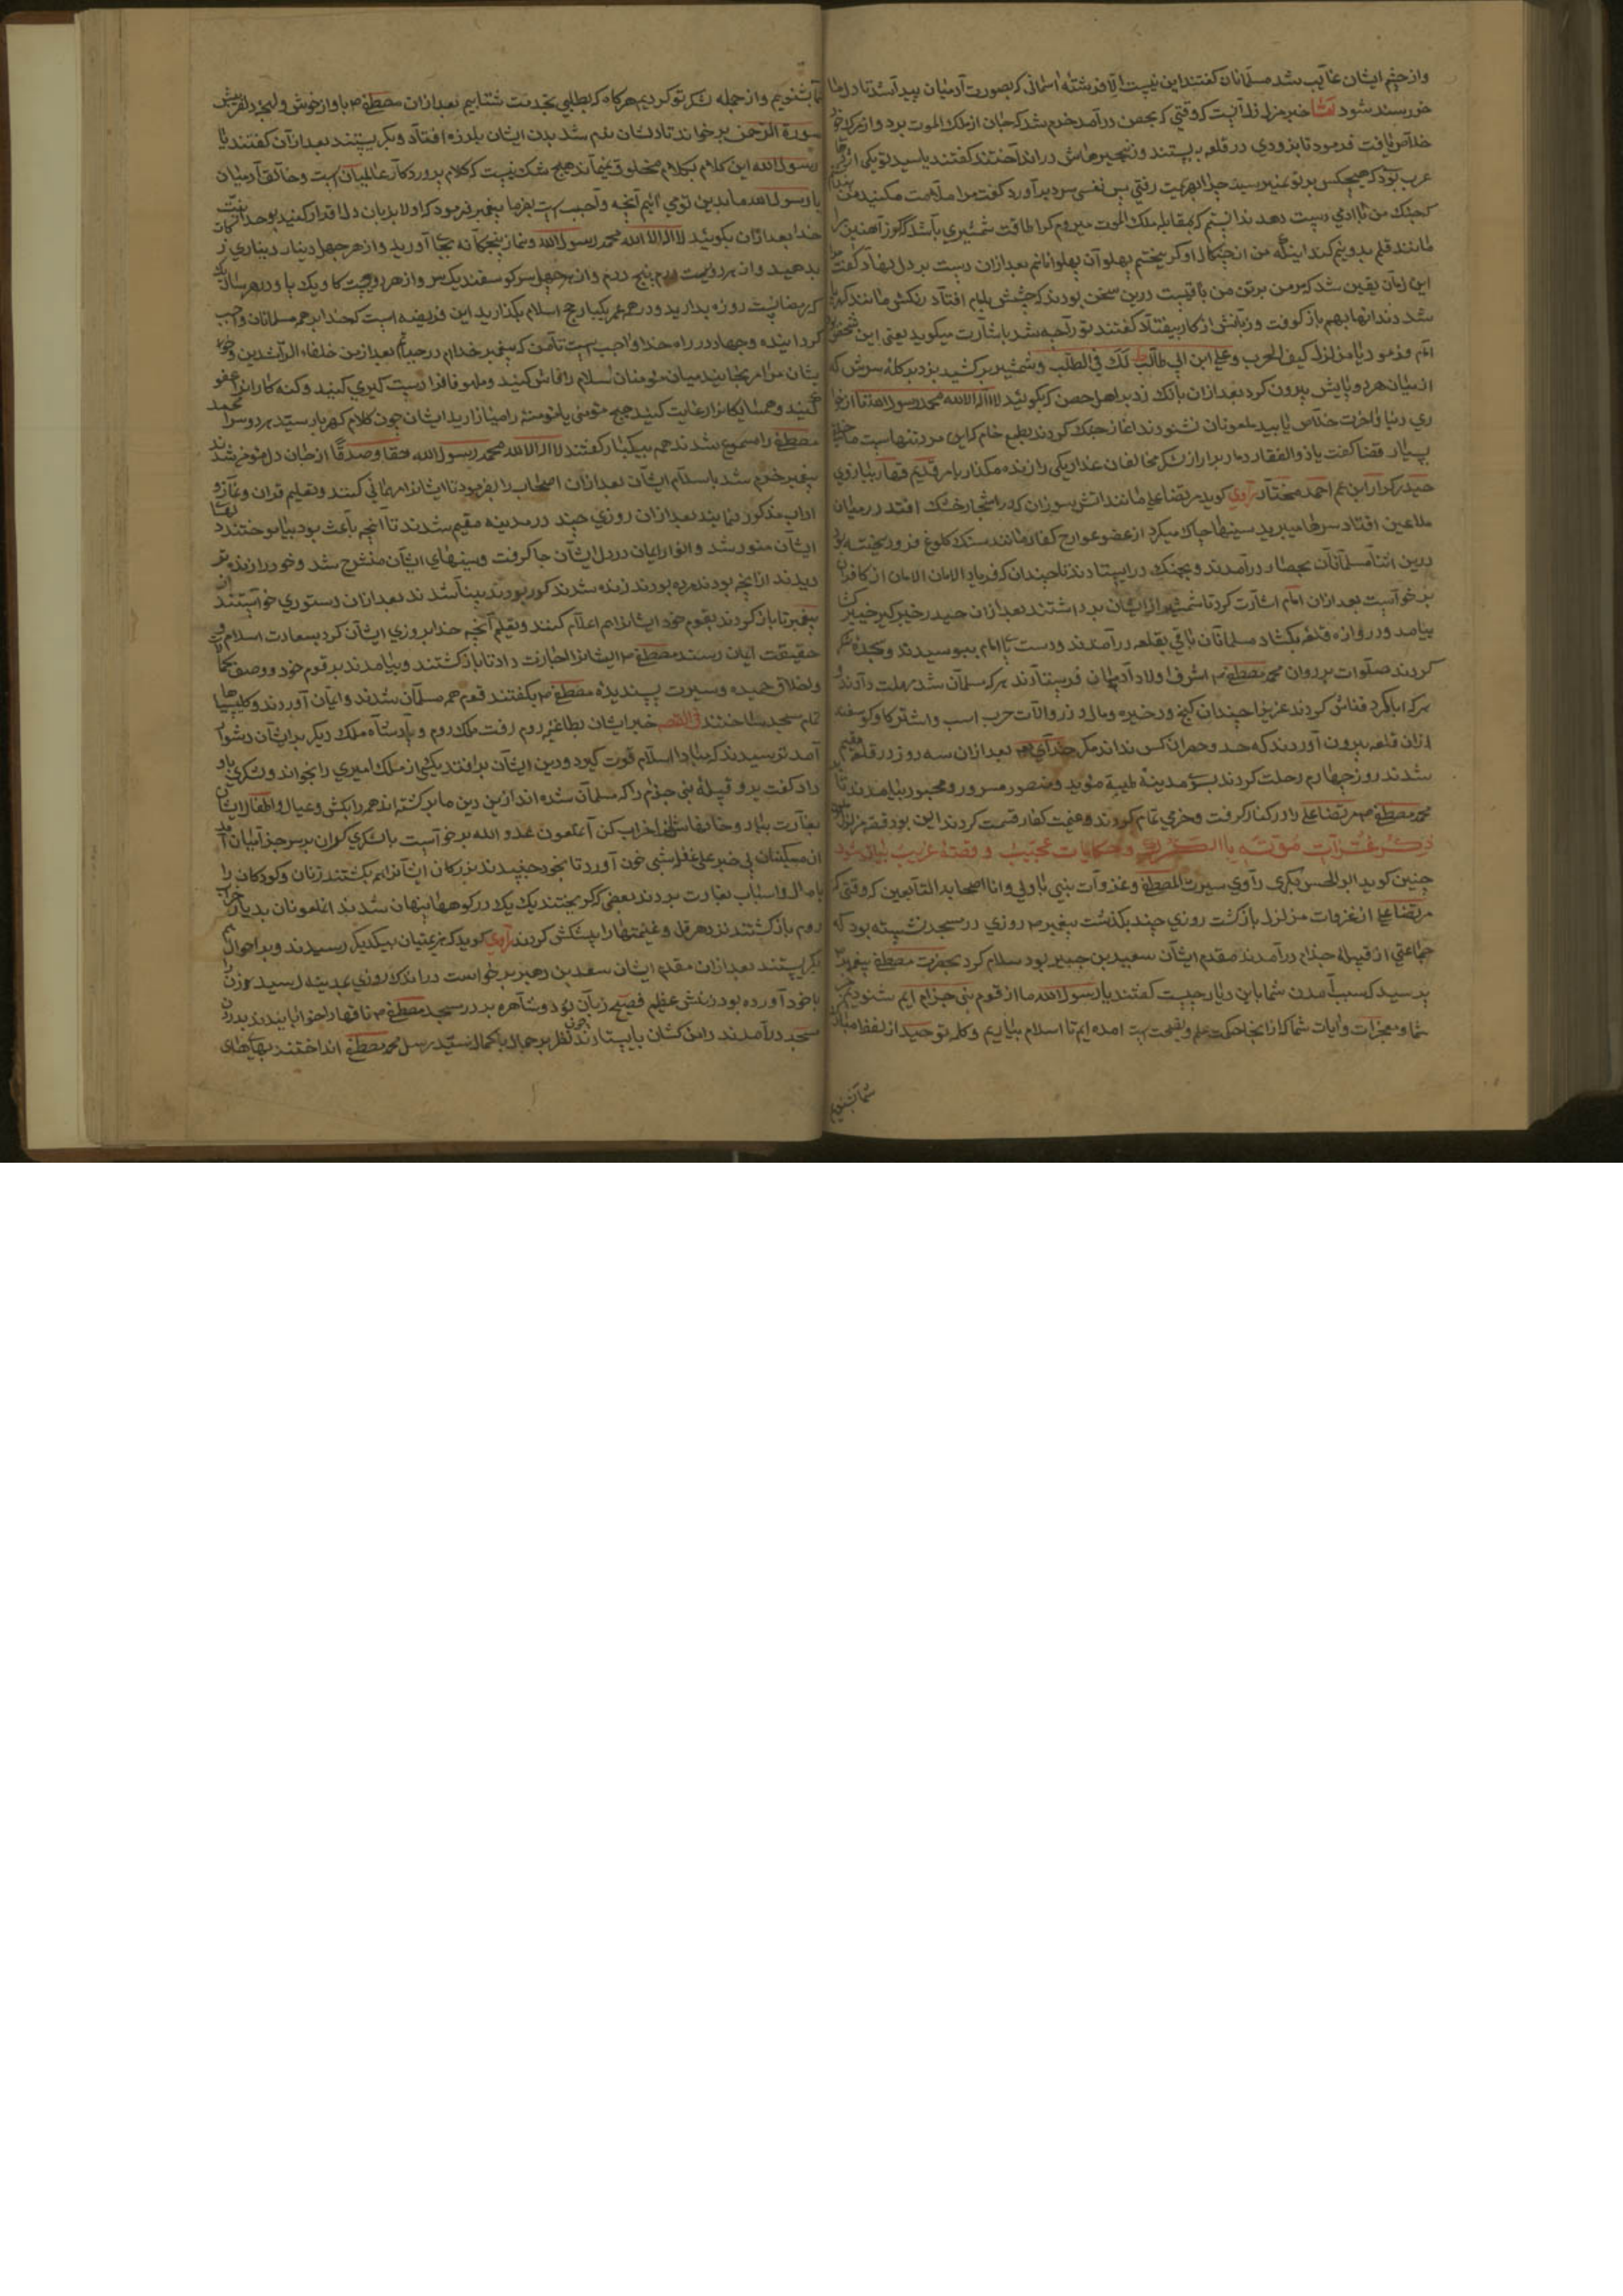 واز چشم ایشان غایب شد مسلمانان گفتند این نیست الا فرشته اسمانی که بصورت آدمیان پیدا شد تا دل ما
خورسند شود اما خبر مزلزل آنست که وقتی که بحصن درآمد خرم شد که جان از ملک الموت برد واز مرک
خلاص یافت فرمود تا بزودی در قلعه ببستند وزنجیرهاش در انداختند گفتند یا سید تو یکی از
عرب بود که هیچکس بر تو نمیرسید چرا بهزیمت رفتی پس نفسی سرد برآورد گفت مرا ملامت مکنید من
که جنک من با ادمی دست دهد ندانستم که بمقابله ملک الموت میروم کرا طاقت شمشیری باشد که کوز آهنین را
مانند قلم بدونیم کند اینکه من از چنکال او کریختم پهلوان پهلوانانم بعد ازان دست بر دل نهاد گفت
این زمان یقین شد که سر من بر تن من باقیست درین سخن بودند که چشمش بامام افتاد رنکش مانند
شد دندانها بهم باز کوفت وزبانش از کار بیفتاد گفتند تو را چه شد باشارت میکوید یعنی این شخص
امام فرمود یا مزلزل کیف الحرب وعلی ابن ابی طالب لک فی الطلب وشمشیر برکشید بزد بر کله سرش که
از میان هر دو پایش بیرون کرد بعد ازان بانک زد بر اهل حصن که بکوئید لا اله الا الله محمد رسول الله تا از
ری دنیا واخرت خلاص یابید ملعونان نشنودند اغاز جنک کردند بطمع خام که این مرد تنهاست
بسیار قضا گفت یا ذوالفقار دمار برار از لشکر مخالفان غدار یکی را زنده مکذار بامر قدیم قهار ببازوی
حیدر کرار ابن عم احمد مختار راوی کوید مرتضا علی مانند اتش سوزان که در اشجار خشک افتد در میان
ملاعین افتاد سرها میبرید سینها چاک میکرد از عضو عوارح کفار مانند سنک کلوغ فرو ریخته بود
درین اثنا مسلمانان بحصار درآمدند وبجنک درایستادند تا چندان که فریاد الامان الامان از کافران
برخواست بعد ازان امام اشارت کرد تا شمشیر از ایشان برداشتند بعد ازان حیدر خیبرکیر خیبرکشا
بیامد ودروازه قلعه بکشاد مسلمانان باقی بقلعه درآمدند ودست پای امام ببوسیدند وسجده شکر
کردند صلوات بر روان محمد مصطفی اشرف اولاد آدمیان فرستادند هرکه مسلمان شد مهلت دادند
هرکه ابا کرد فناش کردند عزیزا چندان کنج وذخیره ومال وزر والات حرب اسب واشتر کاو کوسفند
ازان قلعه بیرون آوردند که حد وحصر ان کس نداند مکر خدای بعد ازان سه روز در قلعه مقیم
شدند روز چهارم رحلت کردند بسوی مدینه طیبه مؤید ومنصور مسرور ومحبور بیامدند تا
محمد مصطفی مرتضا علی را در کنار کرفت وخرمی تمام کردند وغنیمت کفار قسمت کردند این بود قصه مزلزل
ذکر غزات مؤته با الکفره وحکایات عجیب وقصه غریب
چنین کوید ابوالحسن بکری راوی سیرت المصطفی وغزوات بنی با ولی وانا اصحابه التابعین که وقتی که
مرتضا علی از غزوات مزلزل بازکشت روزی چند بکذشت پیغمبر روزی در مسجد نشسته بود که
جماعتی از قبیله جذام درآمدند مقدم ایشان سعید بن جبیر بود سلام کرد بحضرت مصطفی پیغمبر
پرسید که سبب آمدن شما باین دیار چیست گفتند یا رسول الله ما از قوم بنی جزام ایم شنودیم
شما ومعجزات وایات شما که از انجا حکمت علم ونصیحت است امده ایم تا اسلام بیاریم وکلمه توحید از لفظ مبارک
شما بشنویم
شما بشنویم واز جمله لشکر تو کردیم هرکاه که بطلبی بخدمت شتابیم بعد ازان مصطفی باواز خوش ولهجه دلفریبش
سورة الرحمن برخواند تا دلشان نرم شد بدن ایشان بلرزه افتاد وبکریستند بعد ازان گفتند یا
رسول الله این کلام بکلام مخلوق نمیماند هیچ شک نیست که کلام پروردکار عالمیان است وخالق آدمیان
یا رسول الله ما بدین تو می ائیم آنچه واجب است بفرما پیغمبر فرمود که اولا بزبان دل اقرار کنید بوحدانیت
خدا بعد ازان بکوئید لا اله الا الله محمد رسول الله ونماز پنجکانه بجا آورید واز هر چهل دینار دیناری
بدهید واز هر دویست درم پنج درم واز هر چهل سر کوسفند یک سر واز هر دو بیست کاو یک
که رمضانست روزه بدارید ودر همه عمر یکبار حج اسلام بکذارید این فریضه است که خدا بر همه مسلمانان واجب
کردانیده وجهاد در راه خدا واجب است تا من که پیغمبر خدام در حیاتم بعد از من خلفاء الراشدین
یشان مرا مرنجانید میان مومنان سلام را فاش کنید وملهوفا را دست کیری کنید وکنه کارانرا عفو
کنید وهمسایکانرا رعایت کنید هیچ مومنی یا مومنه را میازارید ایشان چون کلام کهربار سید هر دو سرا محمد
مصطفی را مسموع شدند همه بیکبار گفتند لا اله الا الله محمد رسول الله حقا وصدقا از جان دل مومن شدند
پیغمبر خرم شد باسلام ایشان بعد ازان اصحاب را بفرمود تا ایشانرا مهمانی کنند وتعلیم قران ونماز و
اداب مذکور نمایند بعد ازان روزی چند در مدینه مقیم شدند تا آنچه باعث بود بیاموختند دلهای
ایشان منور شد وانوار ایمان در دل ایشان جا کرفت وسینهای ایشان منشرح شد وخود را زنده تر
دیدند از انچه بودند مرده بودند زنده شدند کور بودند بینا شدند بعد ازان دستوری خواستند از
پیغمبر تا بازکردند بقوم خود ایشانرا هم اعلام کنند وتعلیم آنچه خدا بروزی ایشان کرد بسعادت اسلام و
حقیقت ایمان رسند مصطفی ایشانرا اجازت داد تا بازکشتند وبیامدند بر قوم خود ووصف
واخلاق حمیده وسیرت پسندیده مصطفی بگفتند قوم همه مسلمان شدند وایمان آوردند وکلیسیاها
تمام مسجد ساختند فی القصه خبر ایشان بطاغئ روم رفت ملک روم وپادشاه ملک دیکر بر ایشان دشوار
آمد ترسیدند که مبادا اسلام قوت کیرد ودین ایشان برافتد یکی از ملک امیری را بخواند ولشکری باو
داد گفت برو قبیله بنی جذم را که مسلمان شده اند از دین ما برکشته اند همه را بکش وعیال واطفال ایشان
بغارت بیار وخانهاشان خراب کن آ ملعون عدو الله برخواست با لشکری کران بر سر جذامیان آمد
ان مسکینان بی خبر علی غفله شبی خون آورد تا بخود جنبیدند بزرکان ایشانرا همه بکشتند زنان وکودکان را
با مال واسباب بغارت بردند بعضی که کریختند یک یک در کوهها پنهان شدند ان ملعونان بدیار
روم بازکشتند نزد هرقل وغنیمتها را پیشکش کردند راوی کوید که هزیمتیان بیکدیکر رسیدند وبر احوال هم
بکریستند بعد ازان مقدم ایشان سعد بن زهیر برخواست در اندک روزی بمدینه رسید وزن را
با خود آورده بود زنش عظیم فصیح زبان بود وشاعره بر در مسجد مصطفی ناقها را خوابانیدند بدرون
مسجد درآمدند دامن کشان بایستادند چون نظر بر جمال با کمال سید رسل محمد مصطفی انداختند